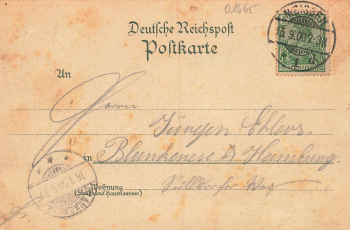 01665
Deutsche Reichspost
Postkarte
16.9.00.2-3N
An
Herrn
Jürgen Ehlers.
in Blankenese b/ Hamburg.
Wohnung
(Straße und Hausnummer)
Sülldorfer Weg